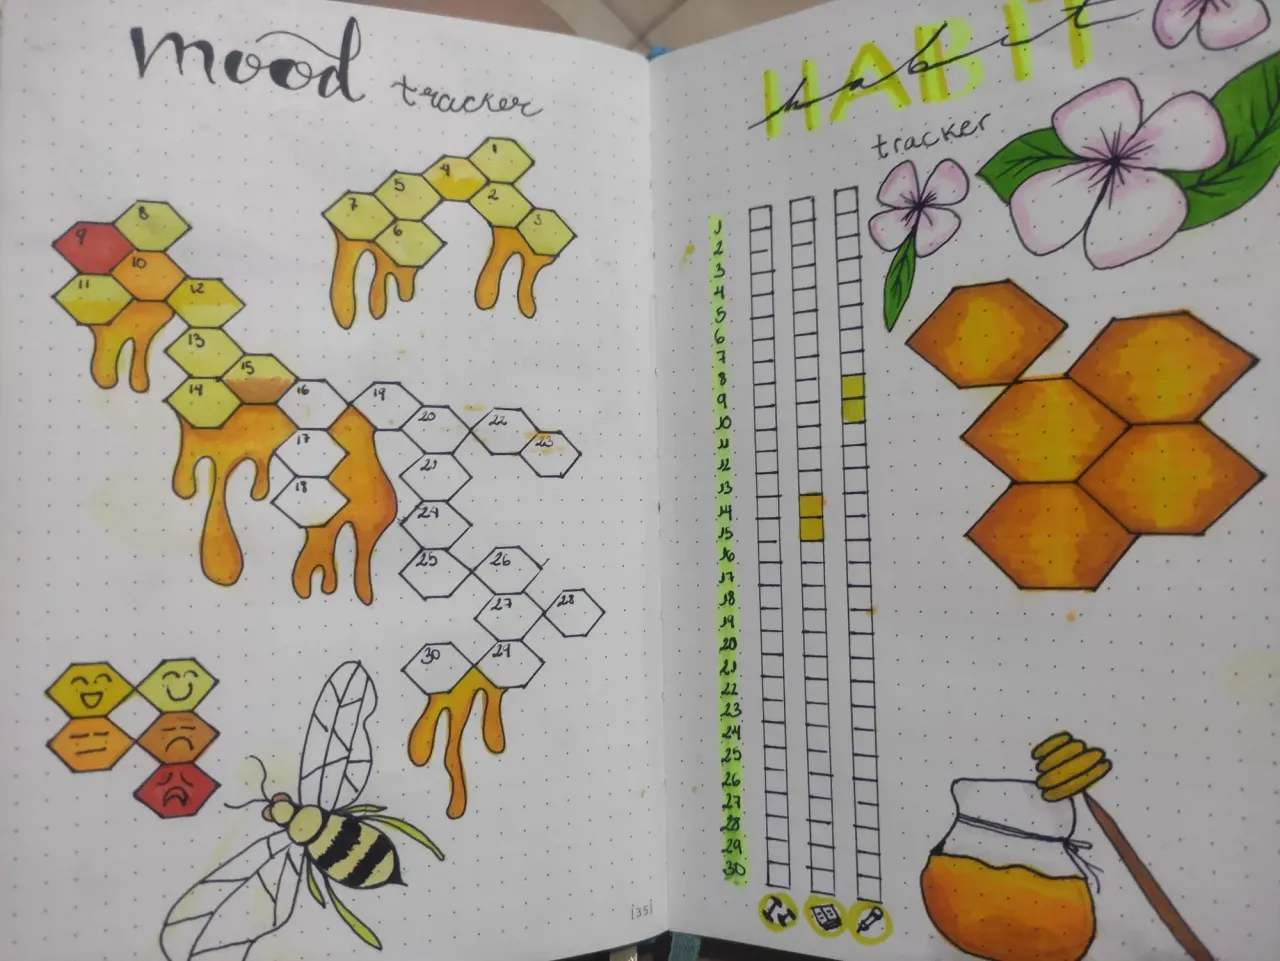 mood tracker
1
2
3
4
5
6
7
8
9
10
11
12
13
14
15
16
17
18
19
20
21
22
23
24
25
26
27
28
29
30
|35|
HABIT
habit
tracker
1
2
3
4
5
6
7
8
9
10
11
12
13
14
15
16
17
18
19
20
21
22
23
24
25
26
27
28
29
30